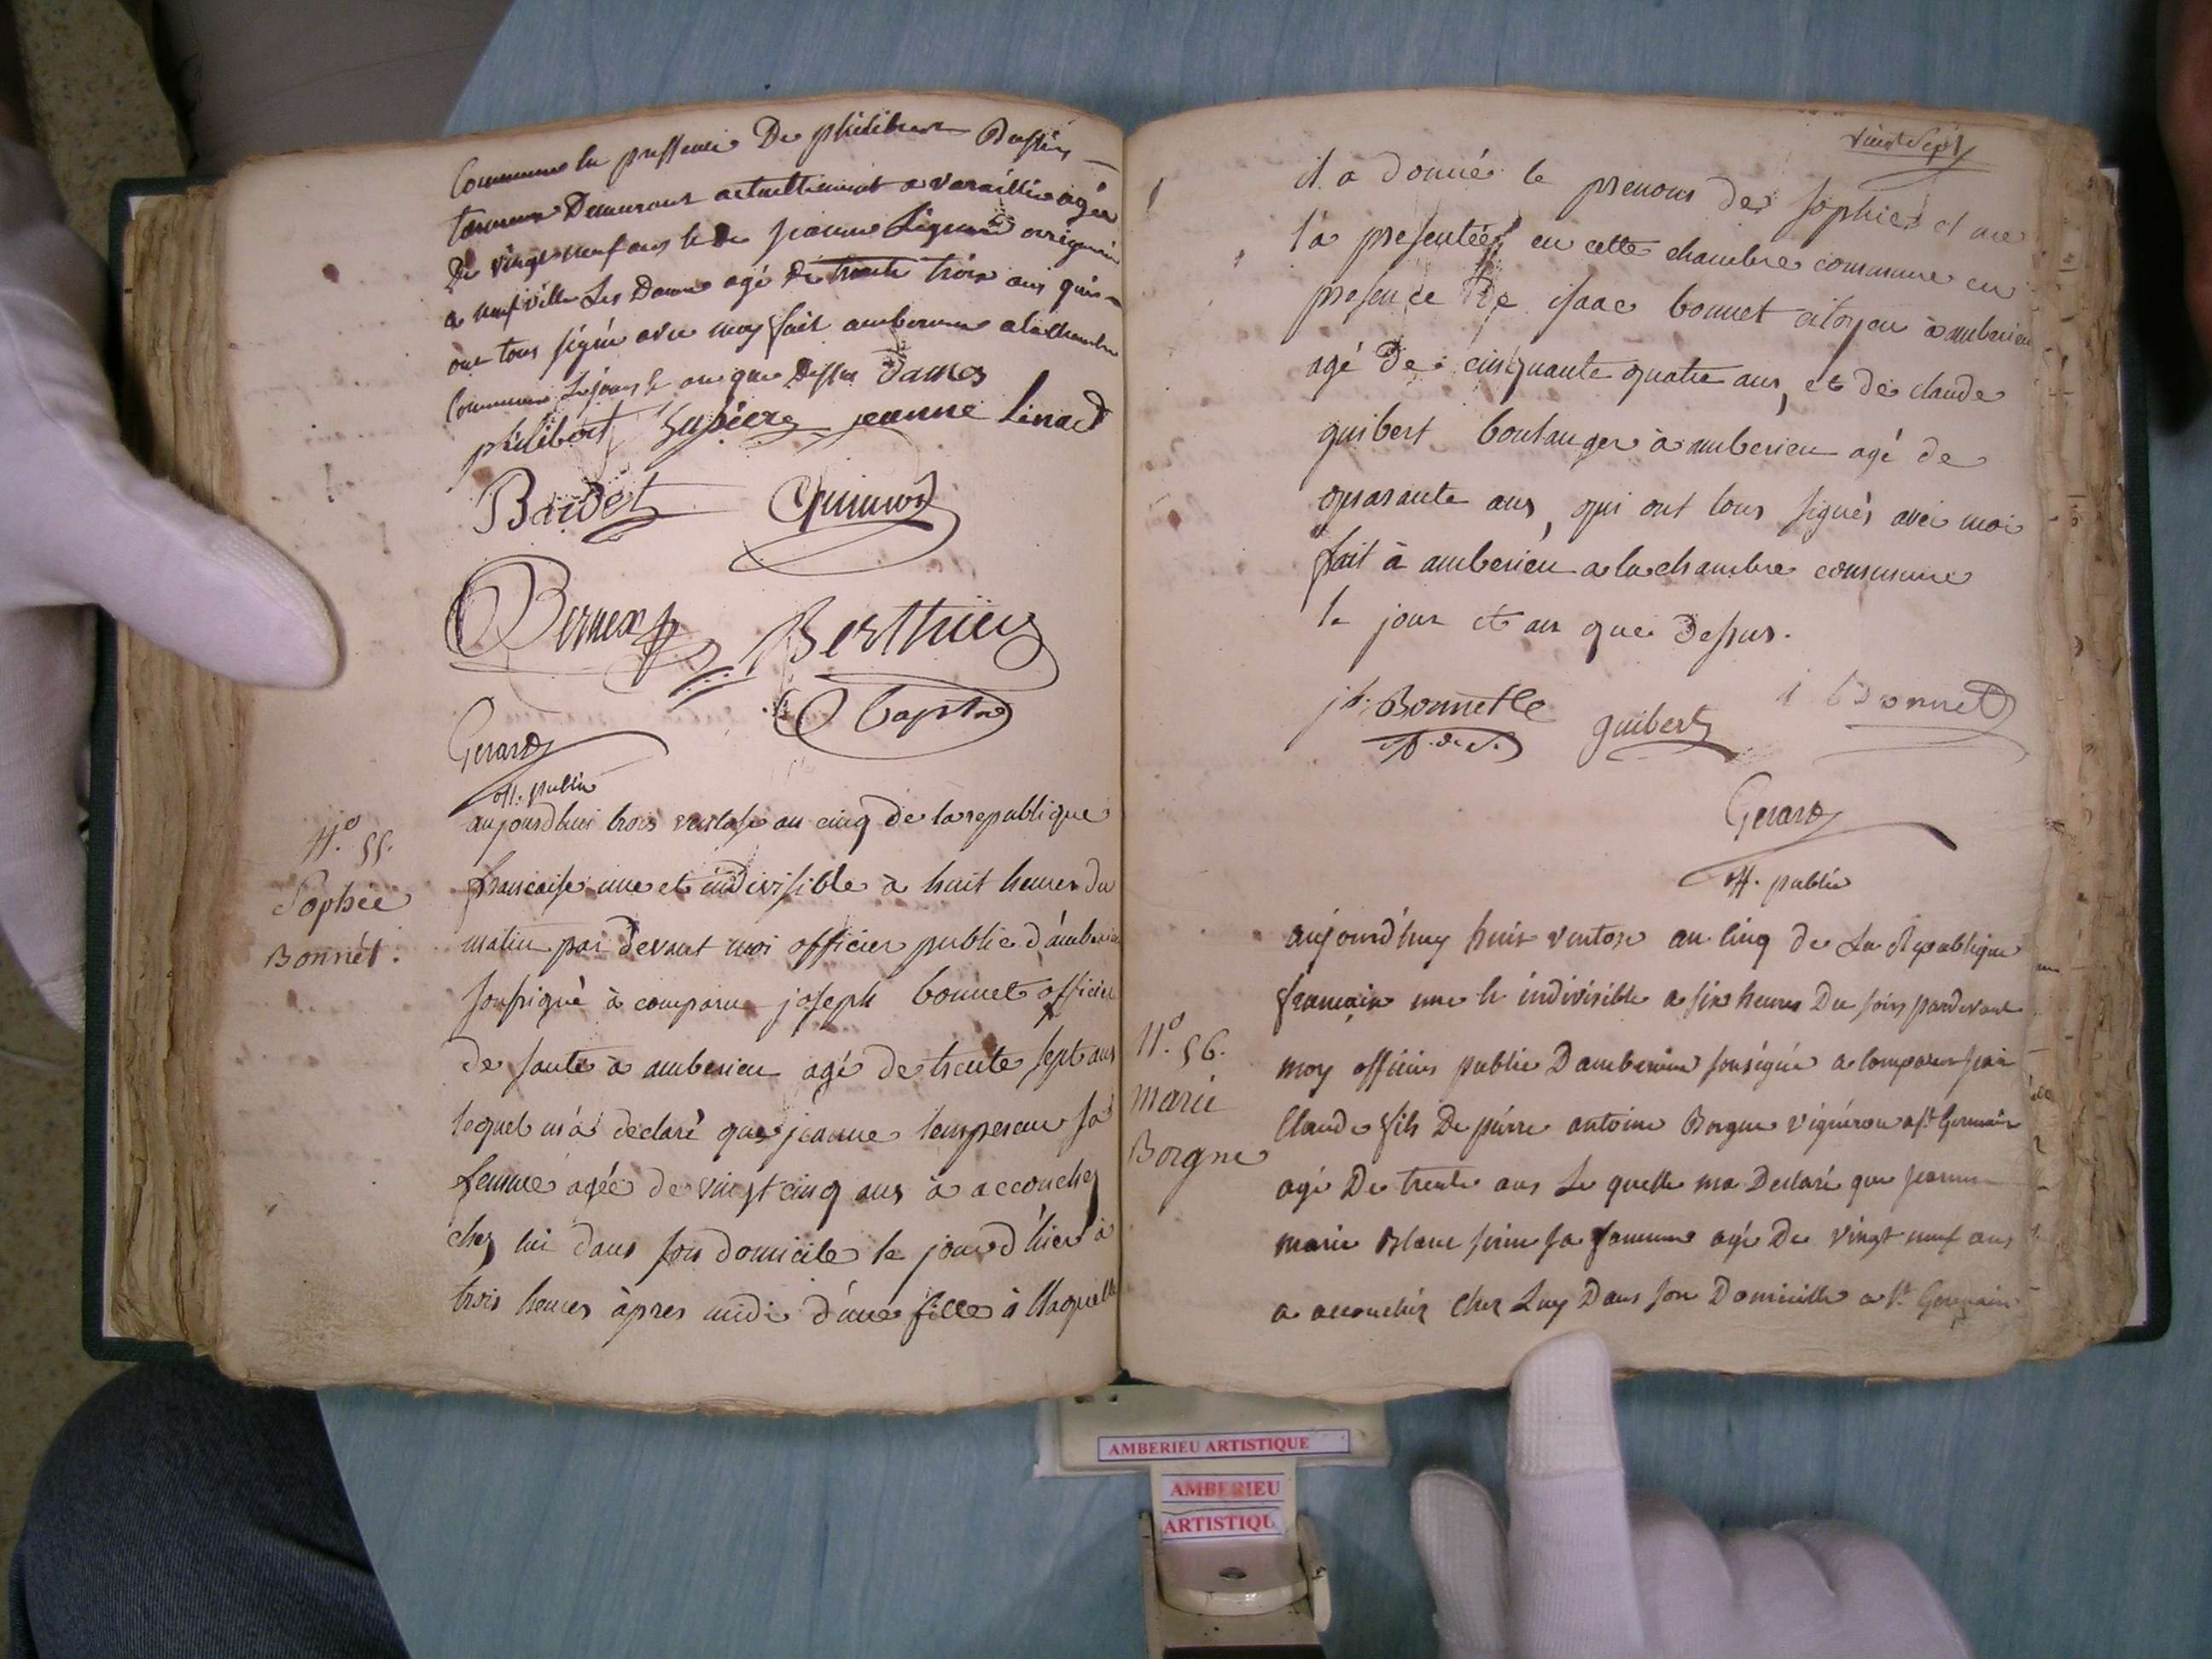 Commune en pressence De philibert
Demeurant actuellement a versaillie agée
De vingt neuf ans & De jeanne Lignard originaire
a neufville Les Dame agé De trente trois ans qui
ont tous signé avec moy fait amberieux a la chambre
Commune Le jour & an que Dessus Dames
philibert jeanne linard
Bardet
Bernex Berthier
Gerard
off. public
N.° 55.
Sophie
Bonnét.
aujourdhui trois ventose an cinq de la republique
francaise une et indivisible à huit heures du
matin par devant moi officier public d'amberieu
soussigné à comparu joseph bonnet officier
de santé à amberieu agé de trente sept ans
lequel m'a declaré que jeanne temperau sa
femme agée de vingt cinq ans à accouché
chez lui dans son domicile le jour d'hier à
trois heures àpres midi d'une fille à llaquelle
vinct Sept
il a donné le prenoms de sophie et me
l'a presentée en cette chambre commune en
presence De isaac bonnet citoyen à amberieu
agé de cinquante quatre ans, et de claude
guibert boulanger à amberieu agé de
quarante ans, qui ont tous signés avec moi
fait à amberieu a la chambre commune
le jour et an que dessus.
jh. Bonnet
off. de s. guibert i Bonnet
Gerard
off. public
N.° 56.
marie
Borgne
aujourd'huy huit ventose an cinq de La Republique
française une & indivisible a six heures Du soir pardevant
moy officier public Damberieu sousigné a comparu jean
Claude fils De pierre antoine Borgne vigneron a St Germain
agé De trente ans Le quelle ma Declaré que jeanne
marie Blanc sa famme agé De vingt neuf ans
a accouchéz chez Luy Dans son Domicille a St Germain
AMBERIEU ARTISTIQUE
AMBERIEU
ARTISTIQU